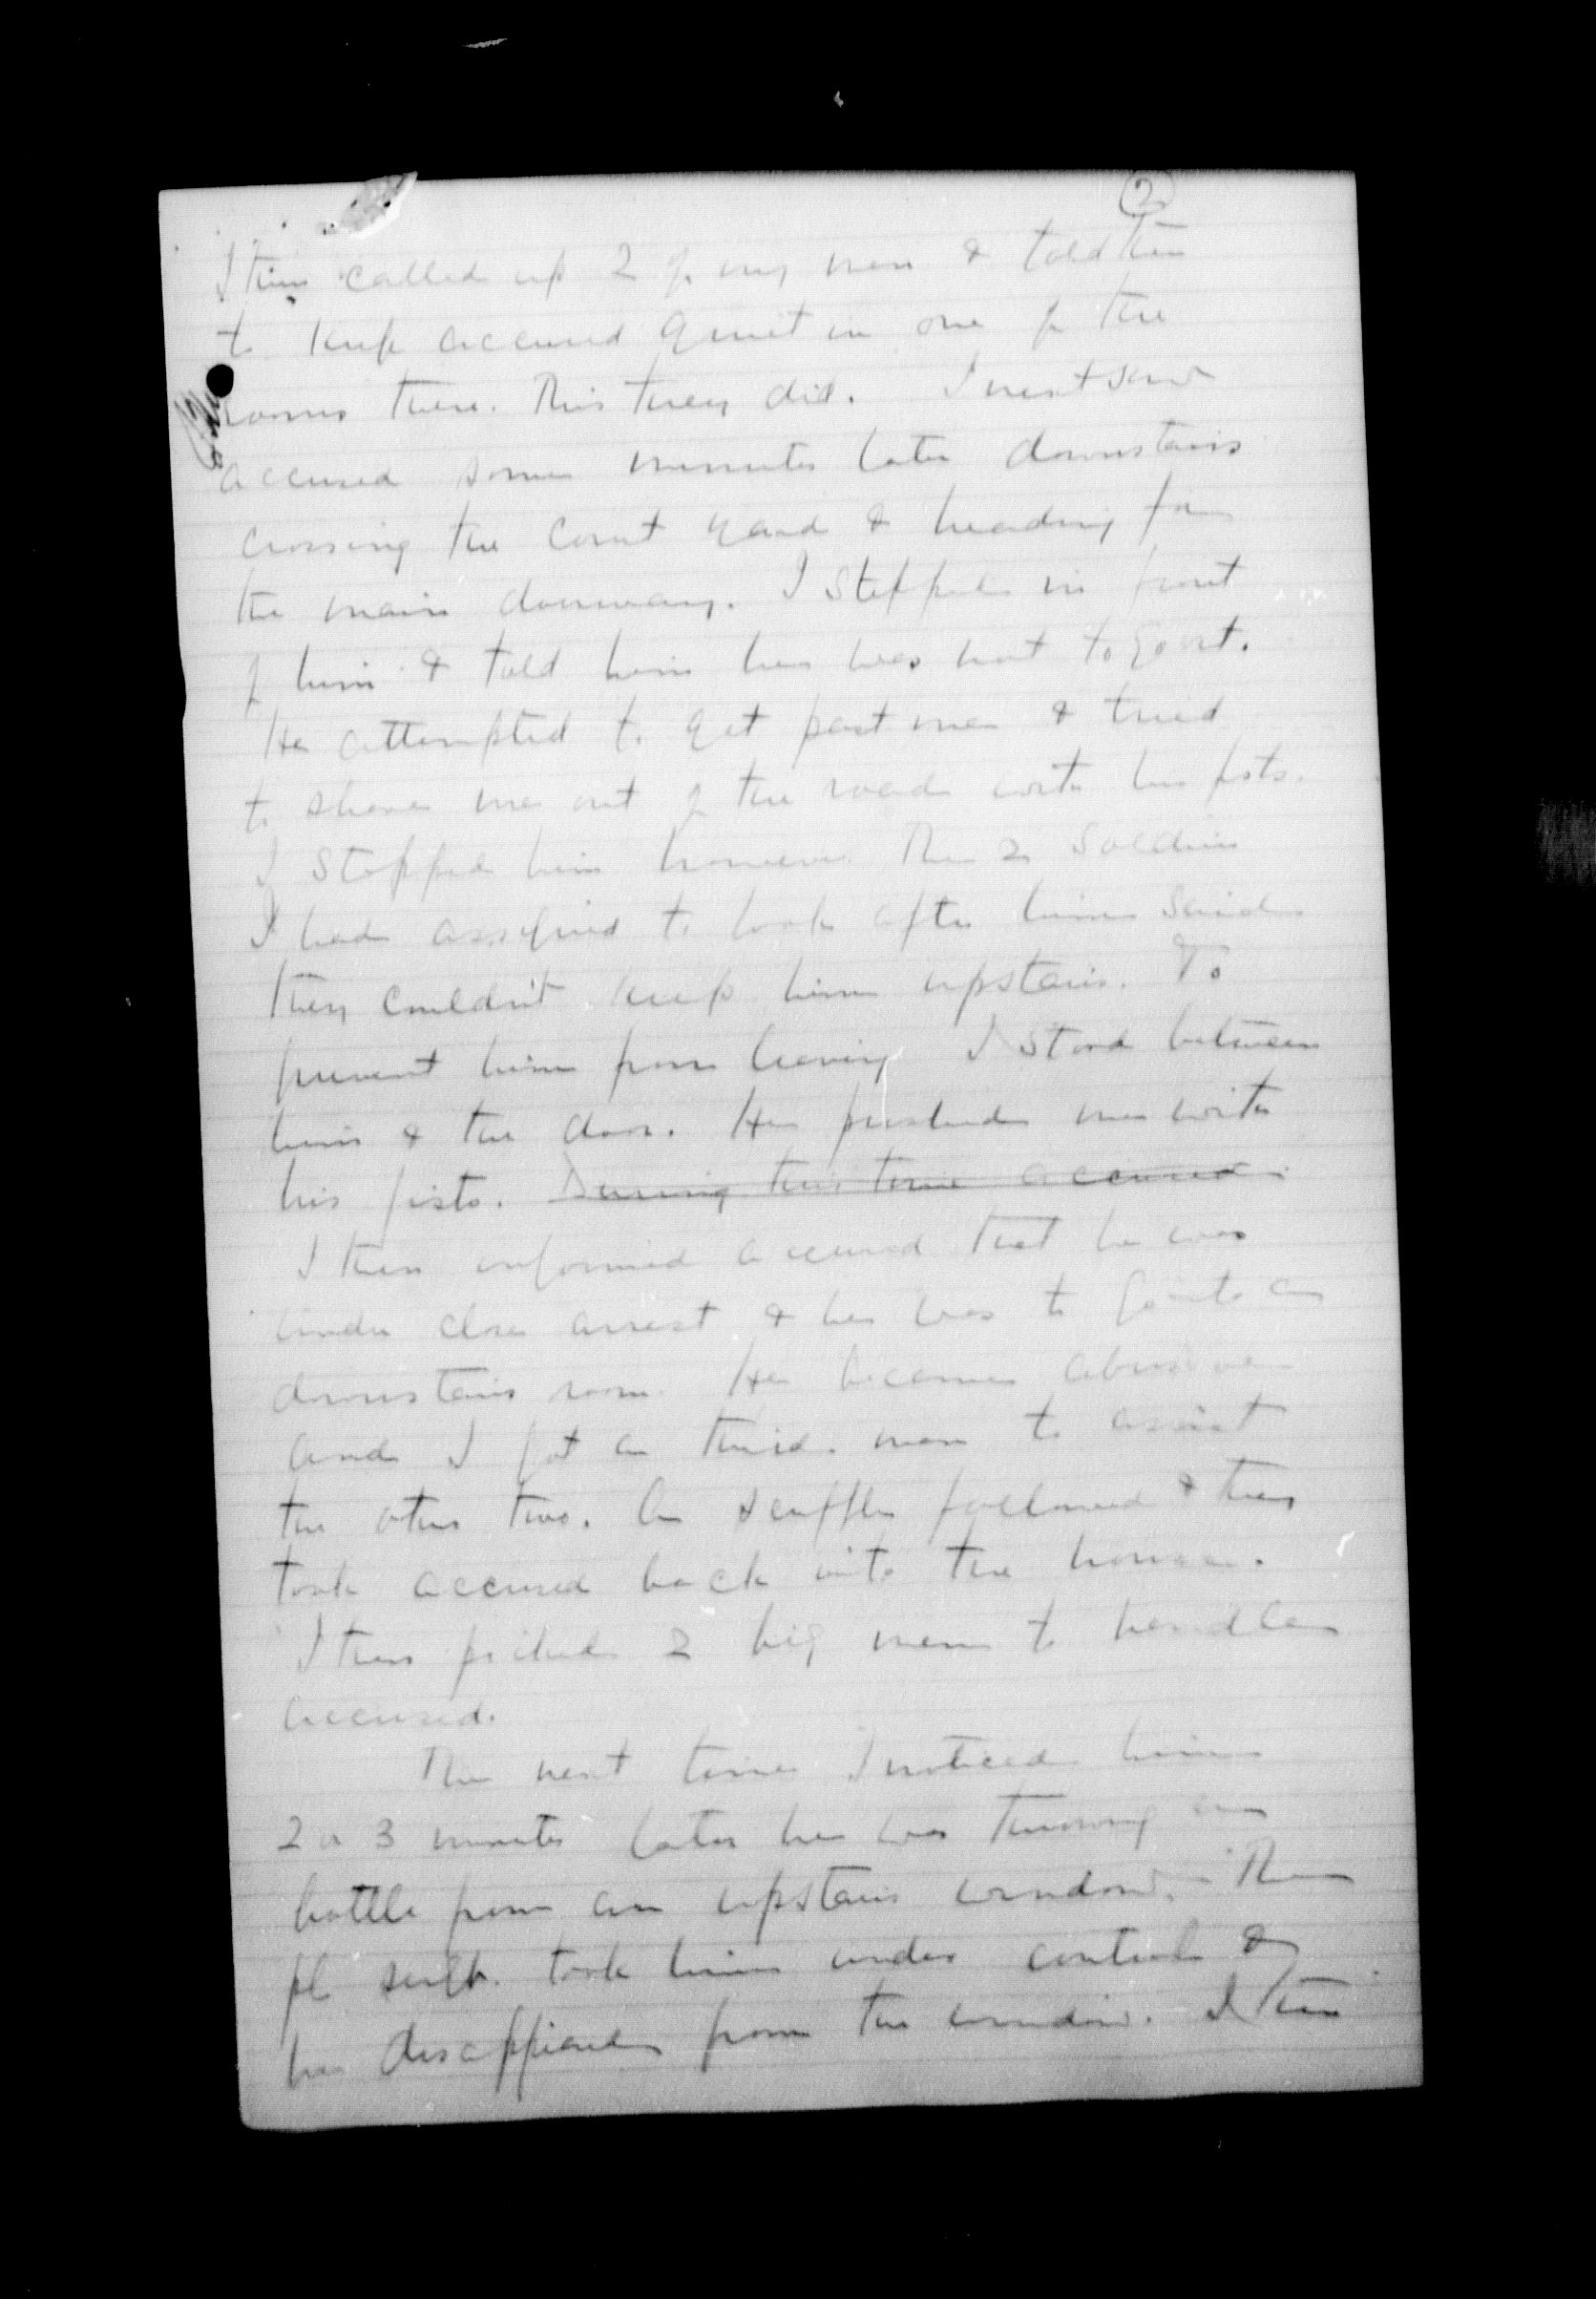 2
I then called up 2 of my men & told them
to keep accused quiet in one of the
rooms there. This they did. I next saw
accused some minutes later downstairs
crossing the court yard & heading for
the main doorway. I stepped in front
of him & told him he was not to go out.
He attempted to get past me & tried
to shove me out of the road with his fists.
I stopped him however. The 2 soldiers
I had assigned to look after him said
they couldn't keep him upstairs. To
prevent him from leaving I stood between
him & the door. He pushed me with
his fists. During this time accused
I then informed accused that he was
under close arrest & he was to go into a
downstairs room. He became abusive
and I got a third man to assist
the other two. A scuffle followed & they
took accused back into the house.
I then picked 2 big men to handle
accused.
The next time I noticed him
2 or 3 minutes later he was throwing a
bottle from an upstairs window. The
pl sergt. took him under control &
he disappeared from the window. I then